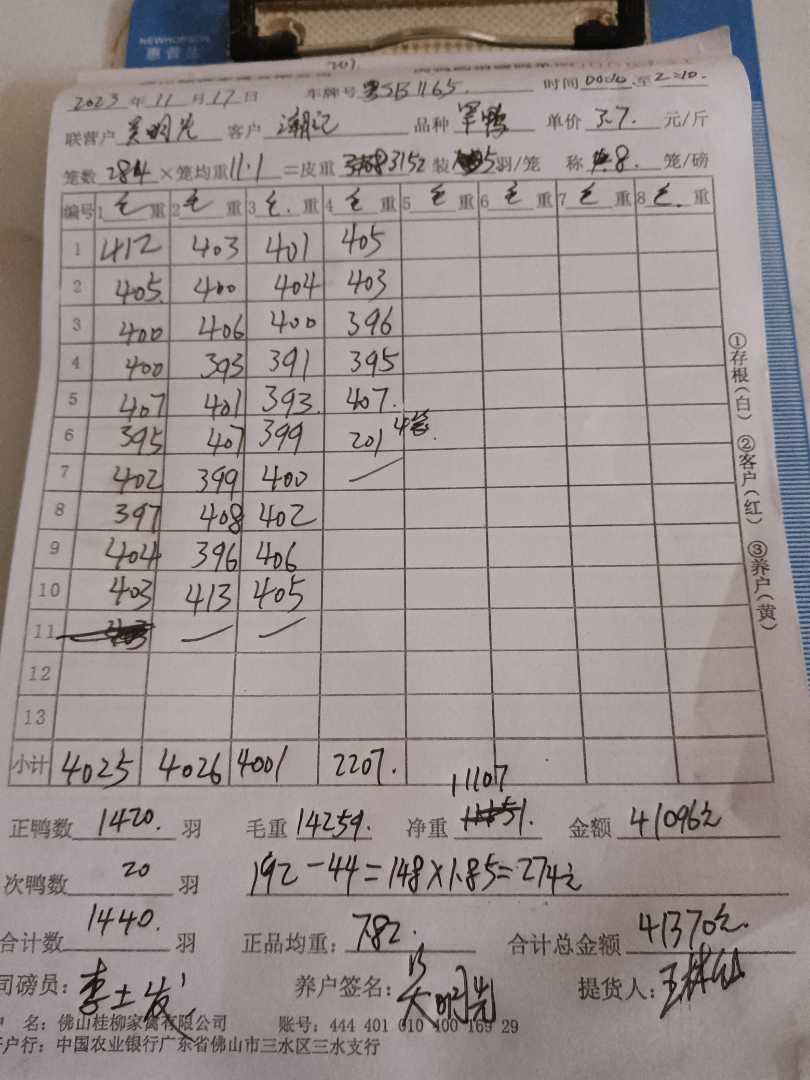 NEWHOPSON
惠普生
2023年11月17日 车牌号粤SB1165 时间00:10至2:10.
联营户 吴明光 客户 潮记 品种 草鸭 单价 3.7. 元/斤
笼数 284 ×笼均重11.1 =皮重 3152 装 5羽/笼 称 8. 笼/磅
编号 1 毛重 2 毛重 3 毛.重 4 毛重 5 毛重 6 毛重 7 毛重 8 毛.重
1 412 403 401 405
2 405 400 404 403
3 400 406 400 396
4 400 393 391 395
5 407 401 393. 407.
6 395 407 399 201 4笼.
7 402 399 400 —
8 397 408 402
9 404 396 406
10 403 413 405
11 — —
12
13
小计 4025 4026 4001 2207.
11107
正鸭数 1420. 羽 毛重 14259. 净重 金额 41096元
次鸭数 20 羽 192-44=148×1.85=274元
合计数 1440. 羽 正品均重: 7.82. 合计总金额 41370元.
司磅员: 李土发 养户签名: 吴明光 提货人: 王林仙
户 名: 佛山桂柳家禽有限公司 账号: 444 401 010 400 169 29
开户行: 中国农业银行广东省佛山市三水区三水支行
①存根(白) ②客户(红) ③养户(黄)